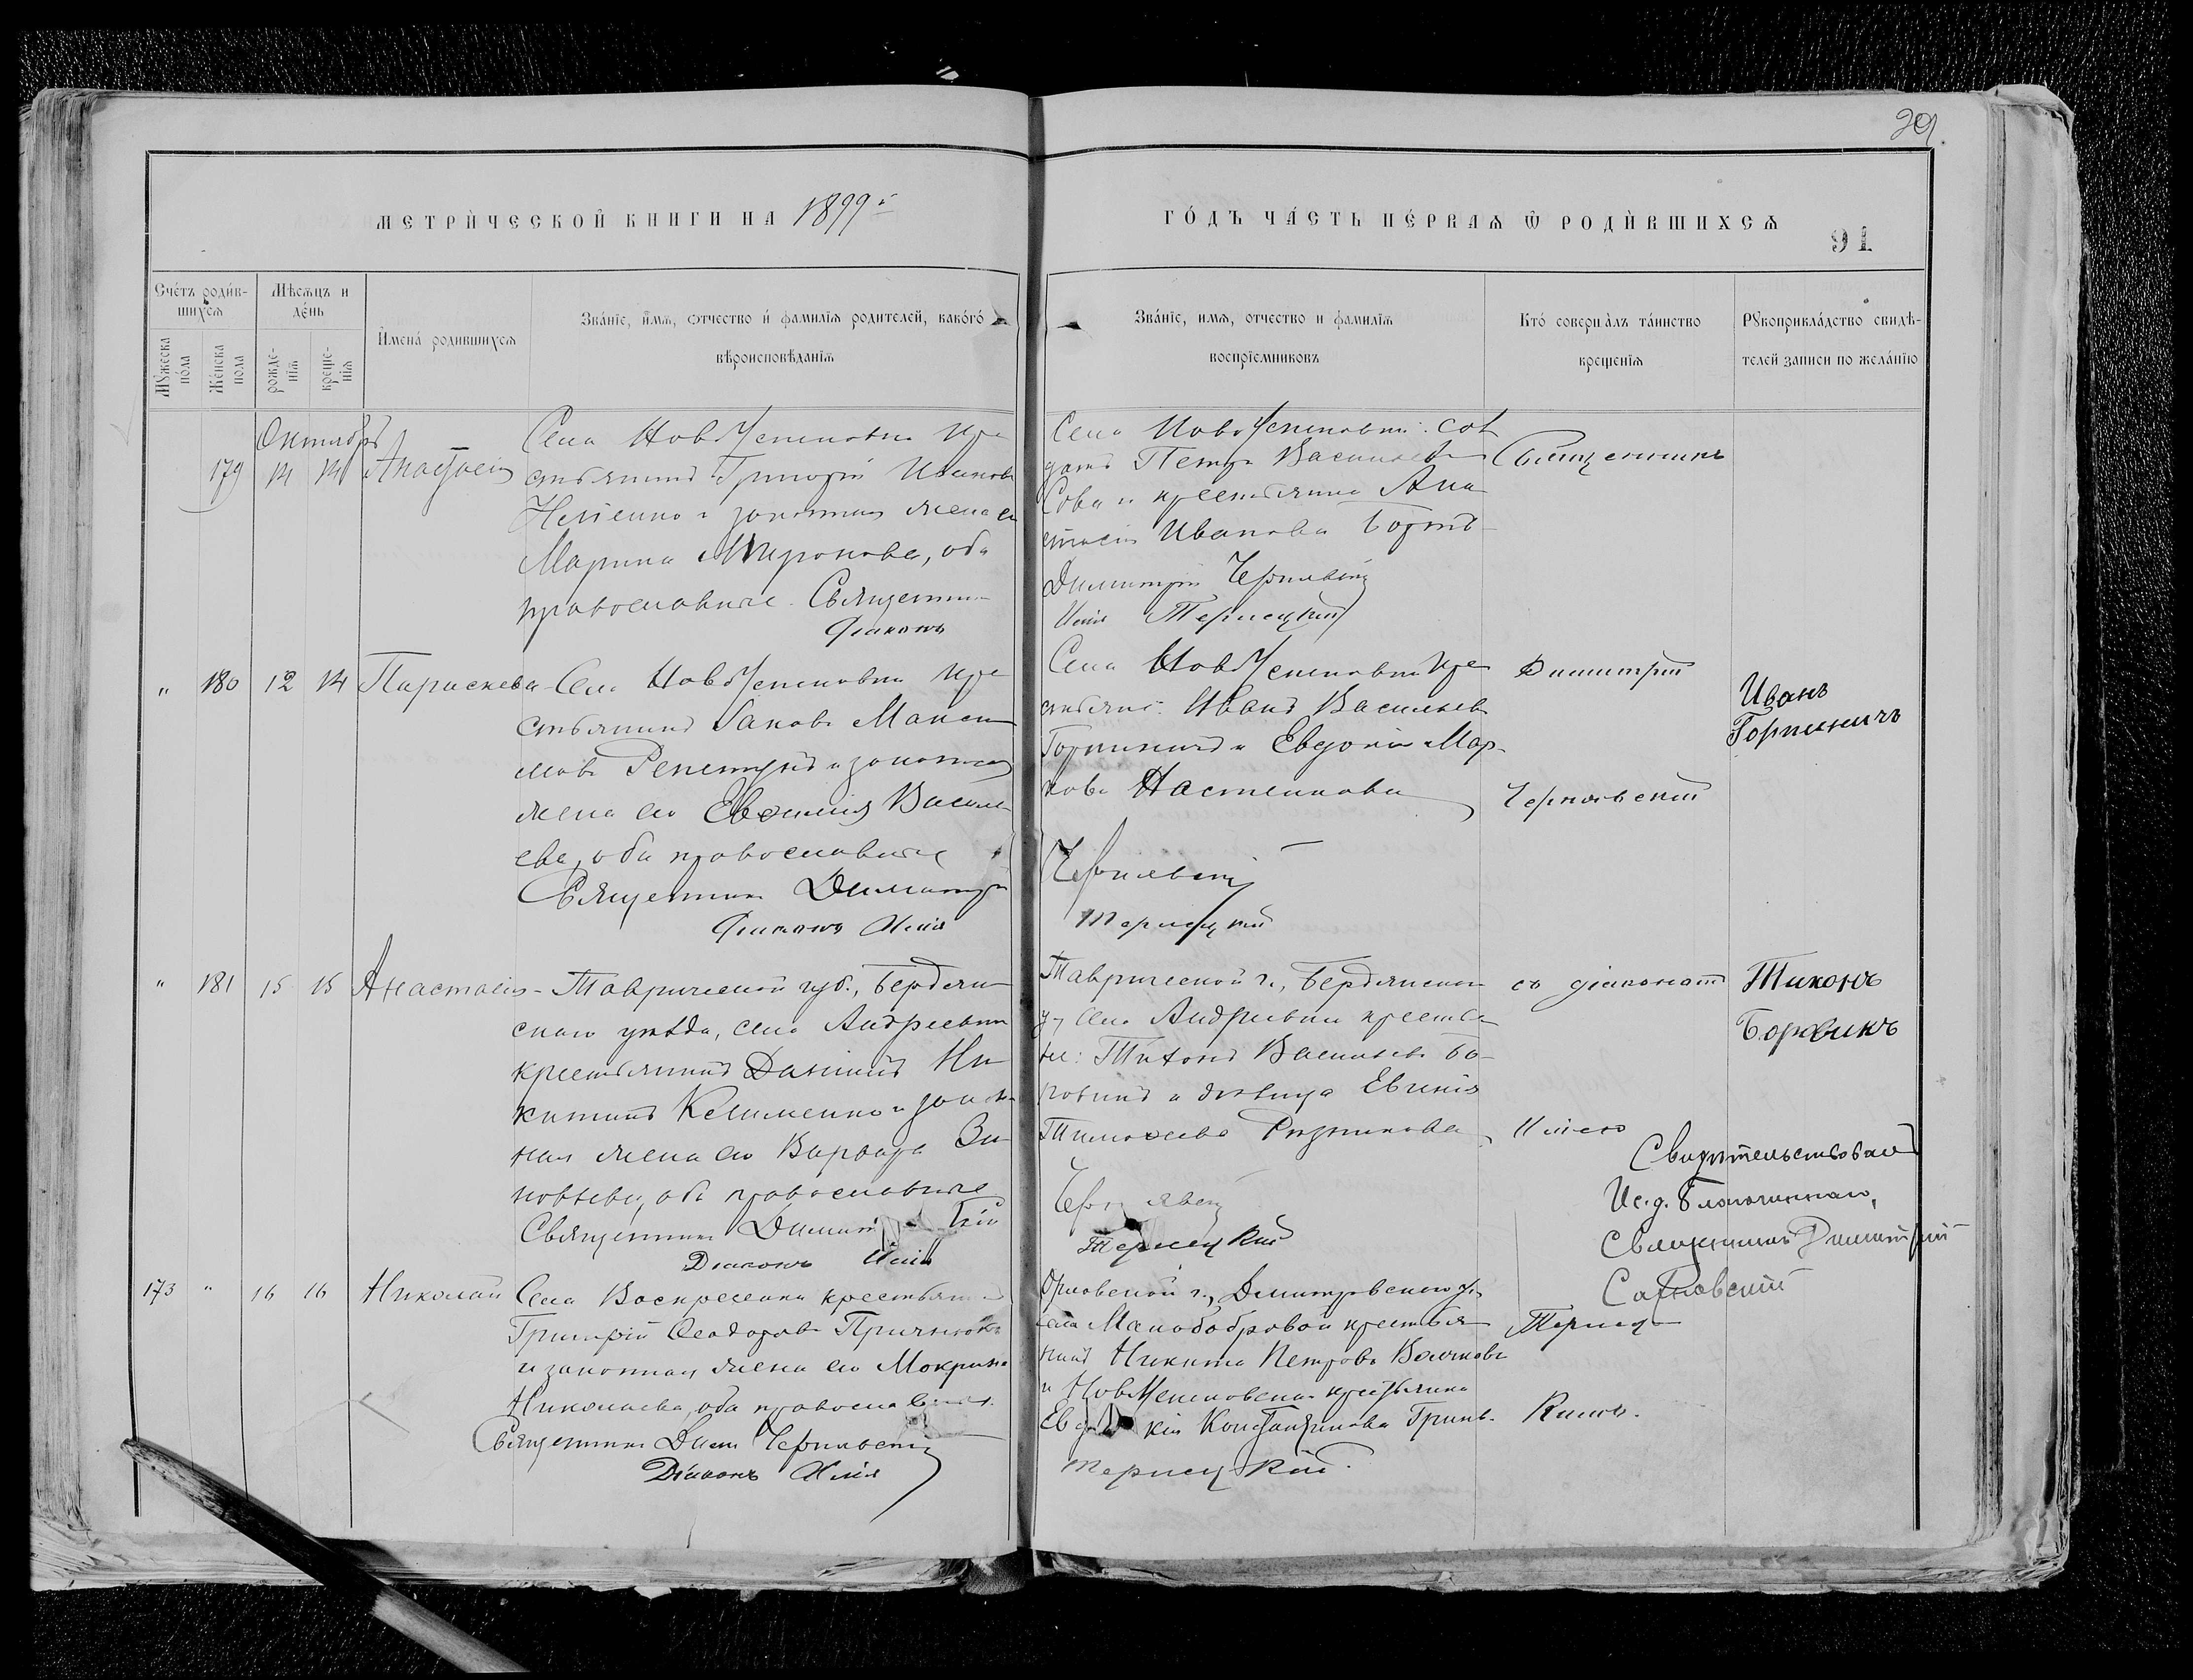 МЕТРИ́ЧЕСКОЙ КНИГИ НА 1899й
ГО́ДЪ ЧА́СТЬ ПЕ́РВАѦ Ѡ РОДИ́ВШИХСѦ
91
Сче́тъ роди́в-
шихсѧ
Мѣсѧцъ и
де́нь
Мꙋжеска
по́ла
Же́нска
пола
рожде-
нїѧ
креще-
нїѧ
И́мена́ родившихсѧ
Зва́нїе, и́мѧ, ѻтчество и́ фамилїѧ родителей, како́го
вѣроисповѣданїѧ
Зва́нїе, имѧ, отчество и фамилїѧ
воспрїемниковъ
Кто́ соверша́лъ та́инство
крещенїѧ
Рꙋкоприкла́дство свидѣ-
телей записи по жела́нїю
Октября
179 14 14 Анастасія
Села НовоУспеновки кре
стьянинъ Григорій Ивановъ
и законная жена его
Марина Миронова, оба
православные. Священник
Діаконъ
Села НовоУспеновки сол
датъ Петръ Васильевъ
Сова и крестьянка Ана
стасія Иванова Бортъ
Димитрій Чернявскій
Илія Терлецкій
Священникъ
" 180 12 14 Параскева
Села НовоУспеновки кре
стьянинъ Іаковъ Макси
мовъ Репетунъ и законная
жена его Евфимія Василь
ева, оба православные
Священник Димитрій
Діаконъ Илія
Села НовоУспеновки кре
стьяне: Иванъ Васильевъ
Горпиничъ и Евдокія Мар-
кова Настенкова
Чернявскій
Терлецкій
Димитрій
Чернявскій
Иванъ
Горпиничъ
" 181 15 15 Анастасія
Таврической губ., Бердян
скаго уѣзда, села Андреевки
крестьянинъ Даніилъ Ни
китинъ Клименко и закон
ная жена его Варвара Зи
новьева, оба православные
Священник Димит рій
Діаконъ Илія
Таврической г., Бердянскаго
у., села Андреевки крестья
не: Тихонъ Васильевъ Бо-
ровикъ и дѣвица Евгенія
Тимофеева Ризникова
Чернявскій
Терлецкій
съ діакономъ
Иліею
Тихонъ
Боровикъ
Свидѣтельствовалъ
Ис. д. Благочиннаго,
Священникъ Димитрій
173 " 16 16 Николай
Села Воскресенки крестьянинъ
Григорій Феодоровъ
и законная жена его Мокрина
Николаева, оба православные.
Священник Дим Чернявскій
Діаконъ Илія
Орловской г., Димитровскаго у.
села Малобобровой крестья
нинъ Никита Петровъ Волчковъ
и НовоУспеновская крестьянка
Евдокія Константинова Гринь.
Терлецкій.
Терлец
кимъ.